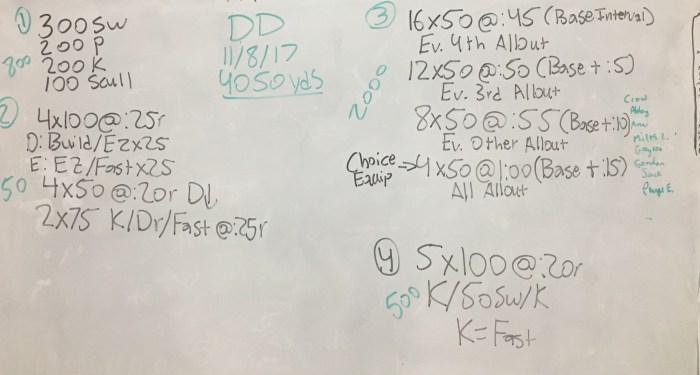 ① 300 Sw
200 P
800 200 K
100 Scull
DD
11/8/17
4050 yds
② 4x100@:25r
D: Build/EZx25
E: EZ/Fastx25
50 4x50@:20r D↓
2x75 K/Dr/Fast@:25r
③ 16x50@:45 (Base Interval)
Ev. 4th Allout
12x50@:50 (Base+:5)
Ev. 3rd Allout
2000
8x50@:55 (Base+:10)
Ev. Other Allout
Choice Equip ⇒ 4x50@1:00 (Base+:15)
All Allout
Crew
Miles L.
Jack
④ 5x100@:20r
500 K/50Sw/K
K=Fast